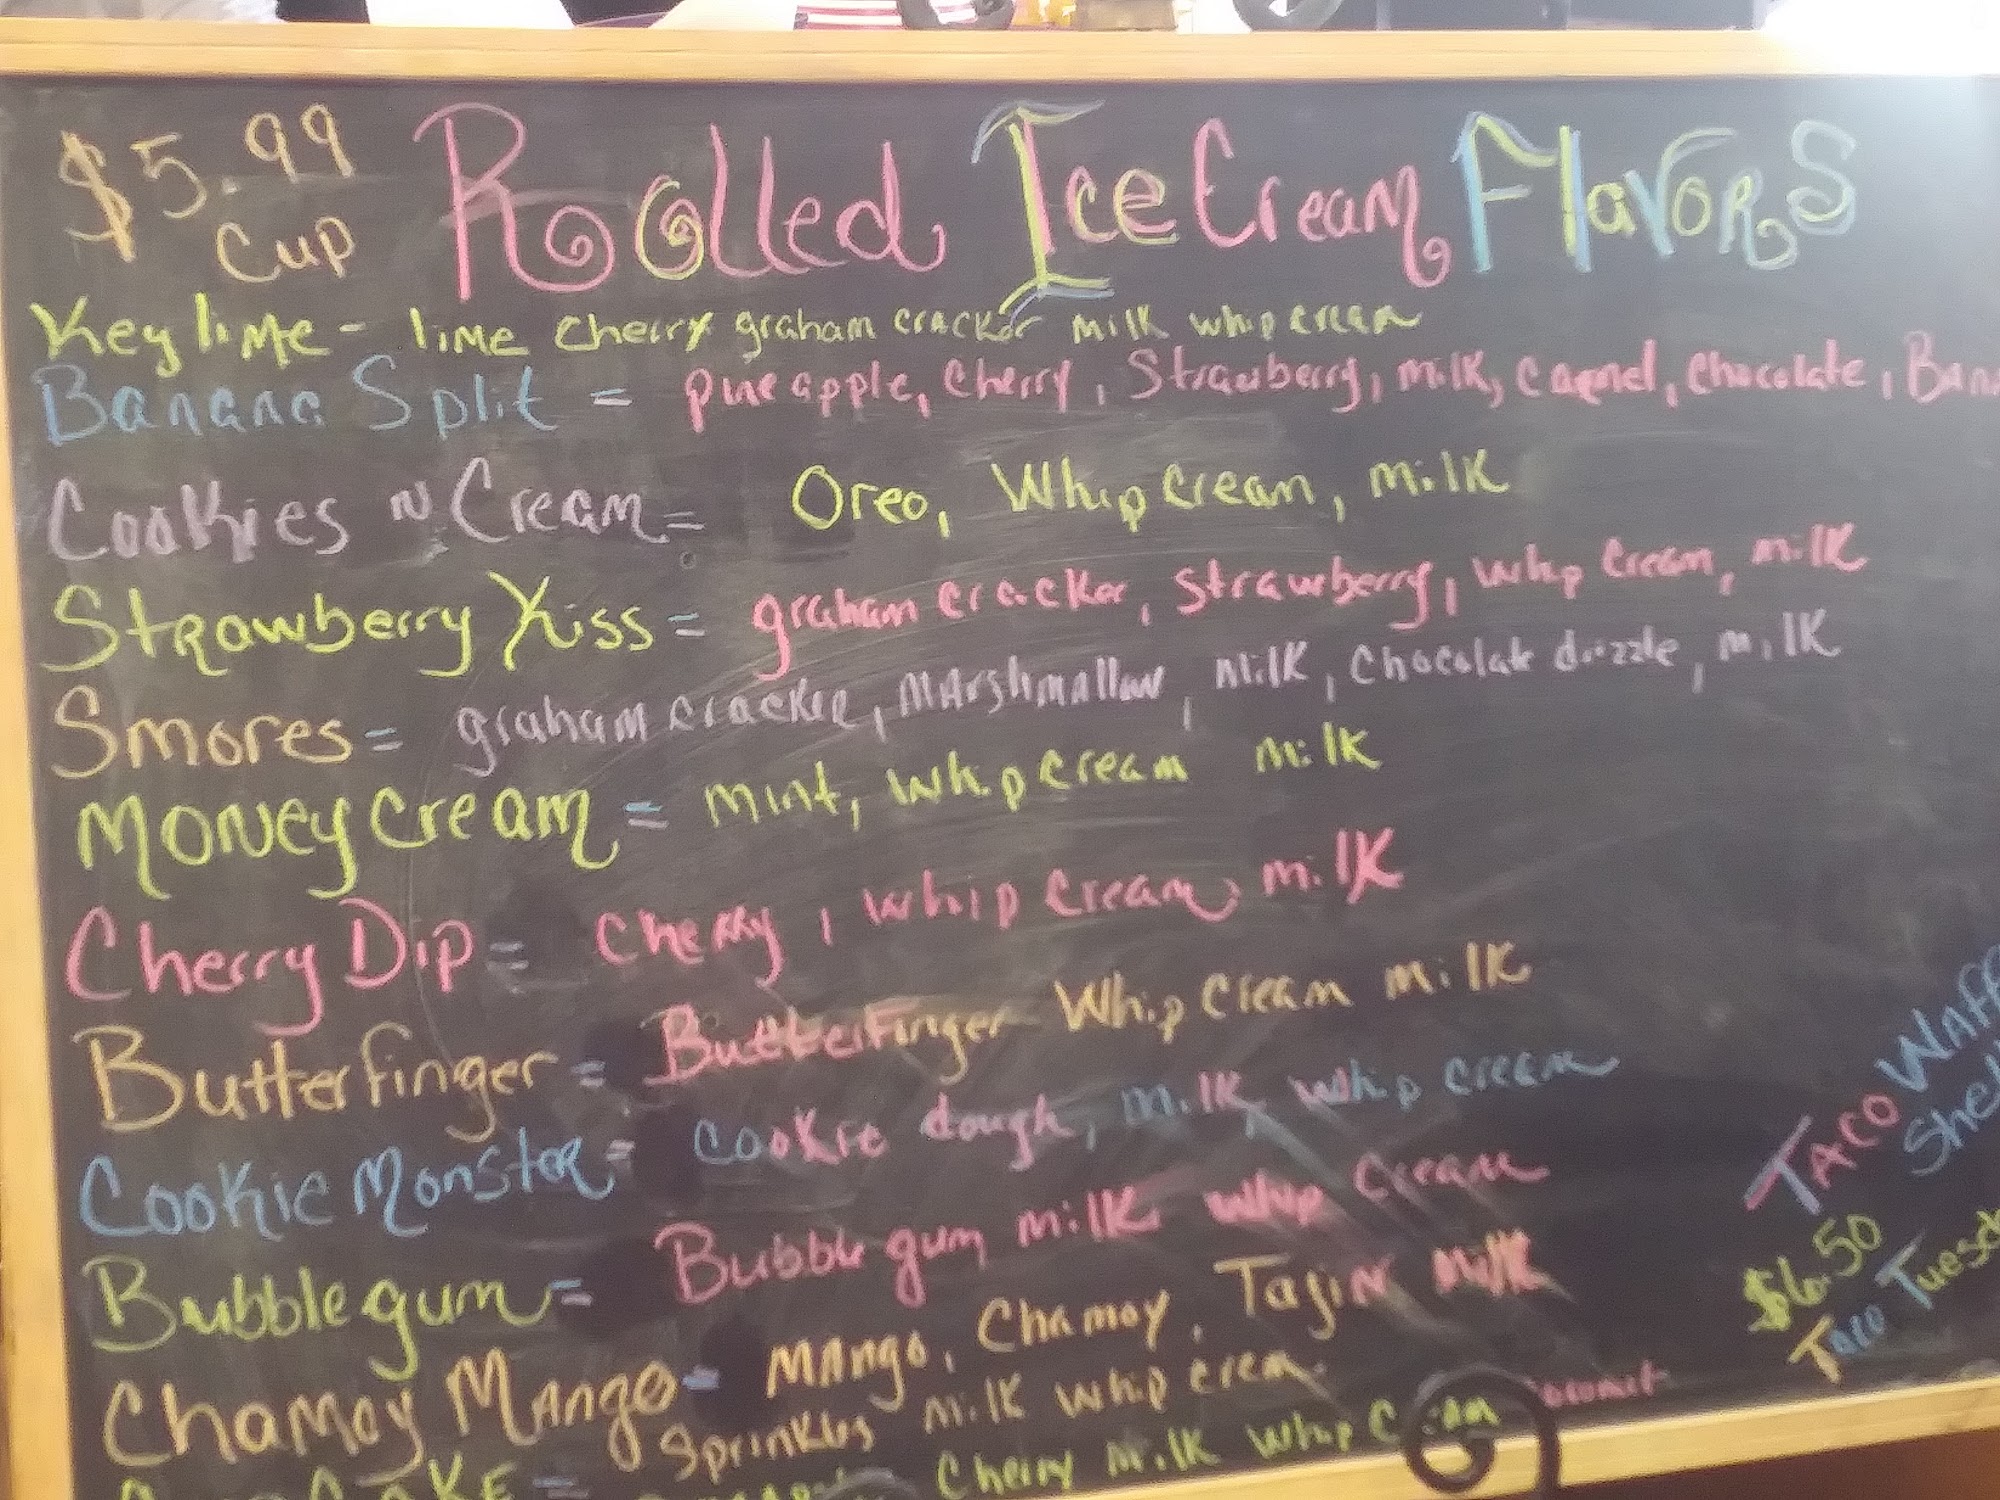 $5.99 Rolled Ice Cream Flavors
Cup
Key lime - lime cherry graham cracker milk whip cream
Banana Split = pineapple, cherry, Strawberry, milk, Carmel, chocolate, Bana
Cookies N Cream = Oreo, Whip cream, milk
Strawberry Kiss = graham cracker, strawberry, whip cream, milk
Smores = graham cracker, marshmallow, milk, chocolate drizzle, milk
Money Cream = mint, whip cream milk
Cherry Dip = cherry, whip cream, milk
Butterfinger = Butterfinger Whip cream milk
Cookie Monster = cookie dough, milk, whip cream
Bubble gum = Bubble gum milk whip cream
Chamoy Mango = mango, Chamoy, Tajin milk
Sprinkles milk whip crem
Cherry milk whip cream
Taco Waff
Shel
$6.50
Taco Tuesd